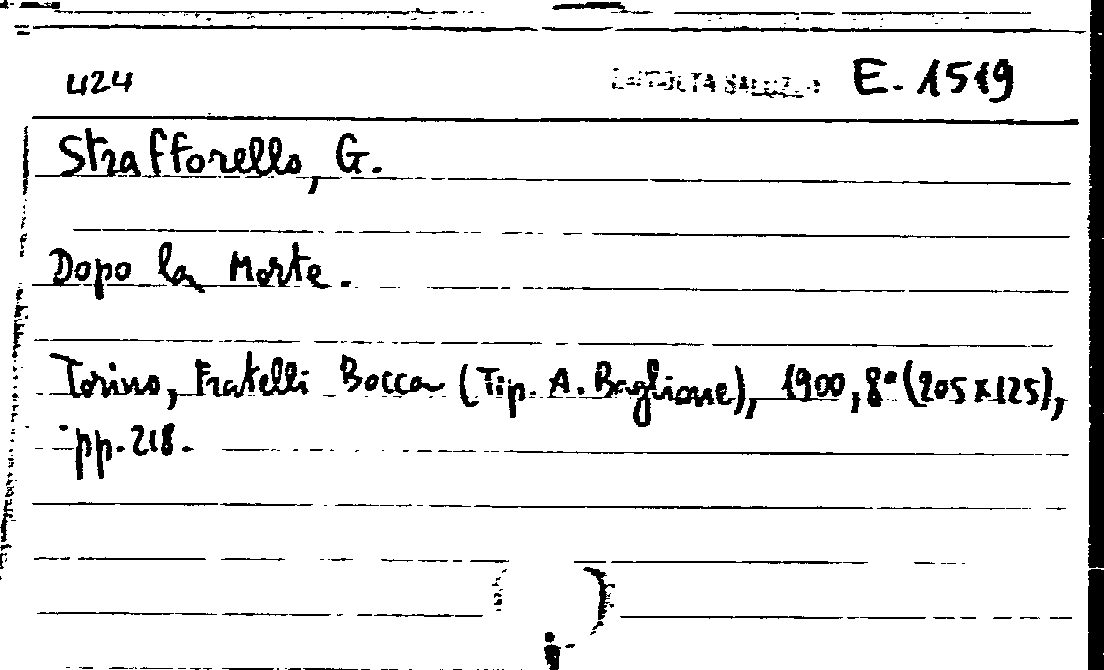 424 E. 1519
Strafforello, G.
Dopo la Morte.
Torino, Fratelli Bocca (Tip. A. Baglione), 1900, 8° (205x125),
pp. 218.